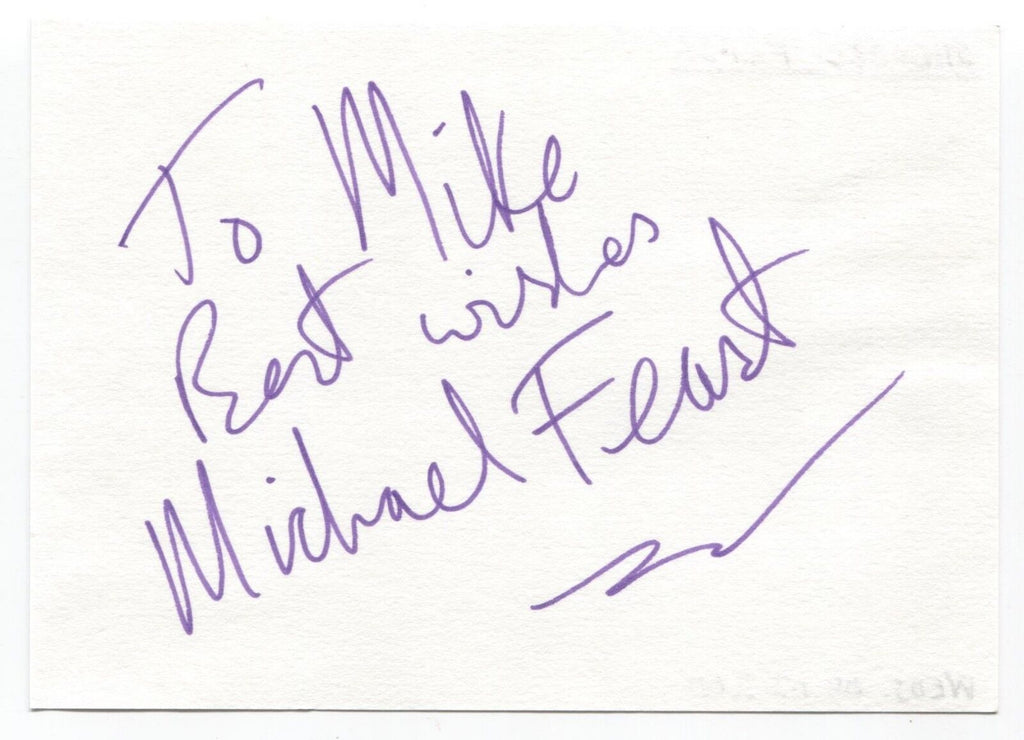 To Mike
Best wishes
Michael Feast